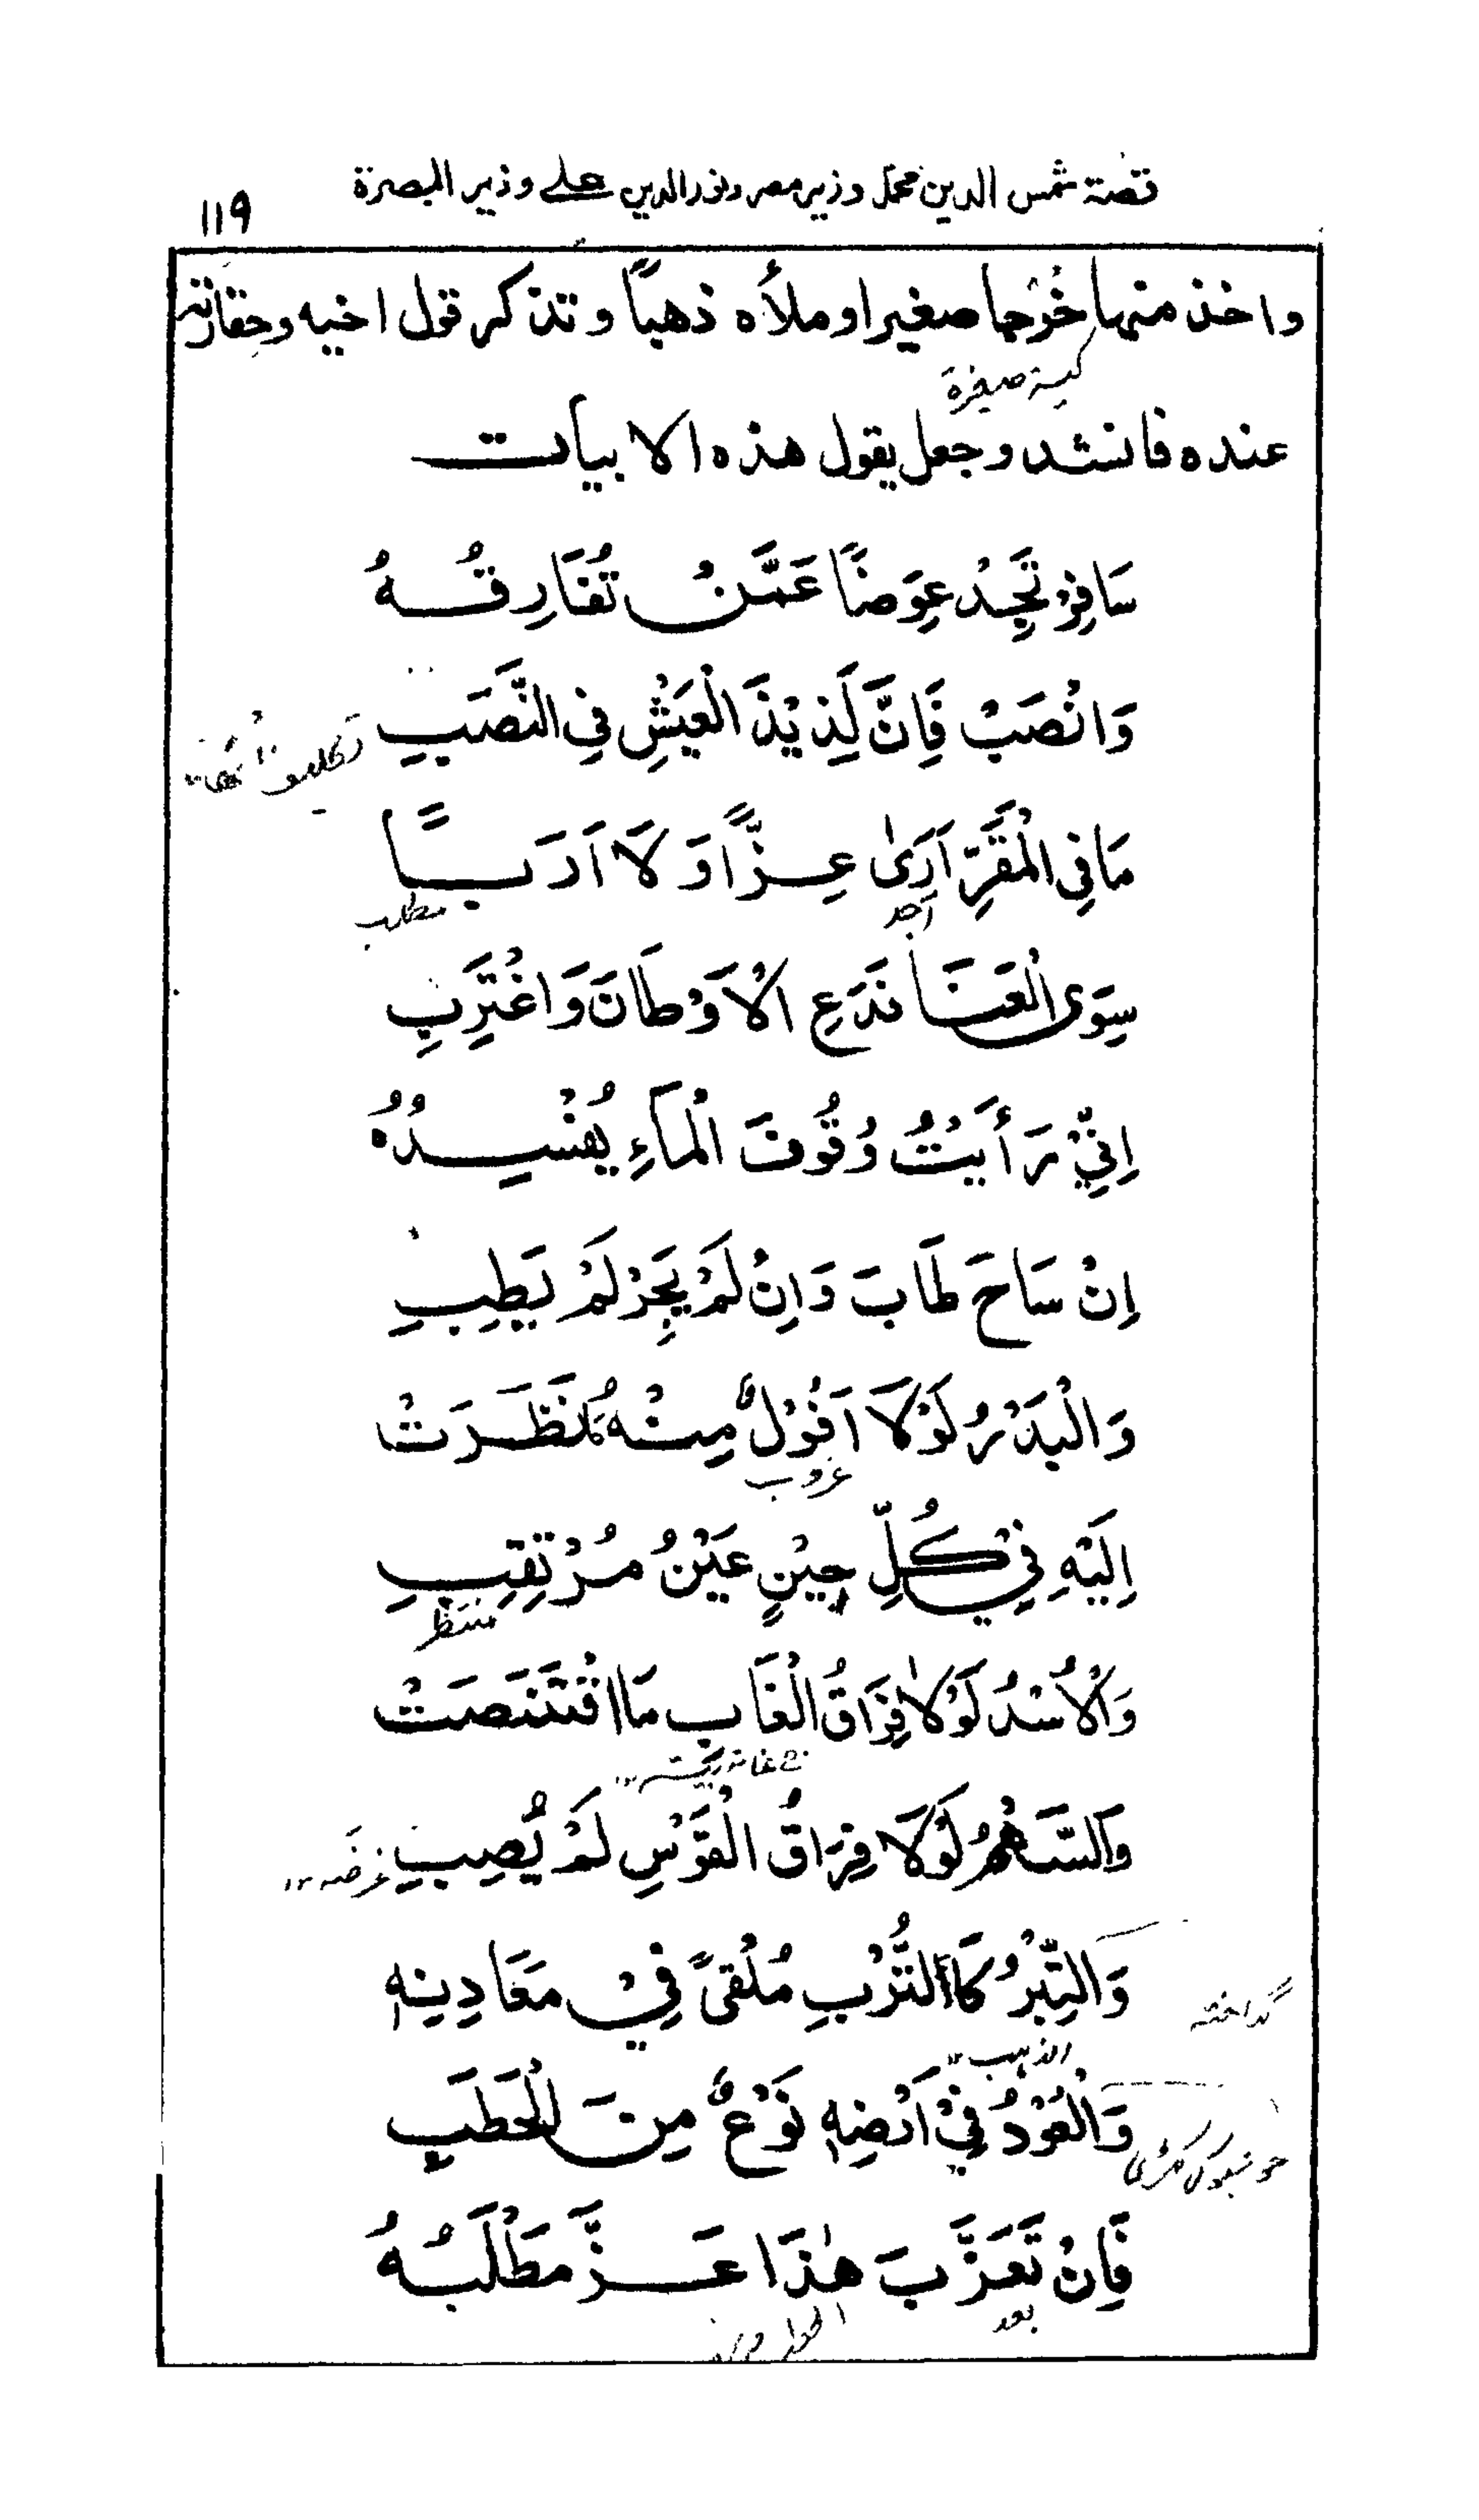 قصة شمس الدين محمد وزير مصر ونور الدين علے وزير البصرة
١١٩
واخذ منها خُرْجا صغيرا وملأه ذهبًا وتذكر قول اخيه وحِقارَته
كيسة صغيرة
عنده فانشد وجعل يقول هذه الابيات
سَافِرْ تَجِدْ عِوَضًا عَمَّنْ تُفَارِقُهُ
وَانْصَبْ فَاِنَّ لَذِيْذَ الْعَيْشِ فِي النَّصَبِ
مَا فِي الْمَقَرِّ اَرَىٰ عِزًّا وَلَا اَدَبًا
مطلب
سِوَى الْعَنَا فَدَعِ الْاَوْطَانَ وَاغْتَرِبِ
اِنِّيْ رَأَيْتُ وُقُوفَ الْمَآءِ يُفْسِدُهُ
اِنْ سَاحَ طَابَ وَاِنْ لَمْ يَجْرِ لَمْ يَطِبِ
وَالْبَدْرُ لَوْلَا اُفُوْلٌ مِنْهُ مَا نَظَرَتْ
غروب
اِلَيْهِ فِيْ كُلِّ حِيْنٍ عَيْنُ مُرْتَقِبِ
منتظر
وَالْاُسْدُ لَوْلَا فِرَاقُ الْغَابِ مَا اقْتَنَصَتْ
وَالسَّهْمُ لَوْلَا فِرَاقُ الْقَوْسِ لَمْ يُصِبِ
وَالتِّبْرُ كَالتُّرْبِ مُلْقًى فِيْ مَعَادِنِهٖ
گداخته
الذهب
وَالْعُوْدُ فِيْ اَرْضِهٖ نَوْعٌ مِنَ الْحَطَبِ
فَاِنْ تَغَرَّبَ هٰذَا عَزَّ مَطْلَبُهُ
بعد